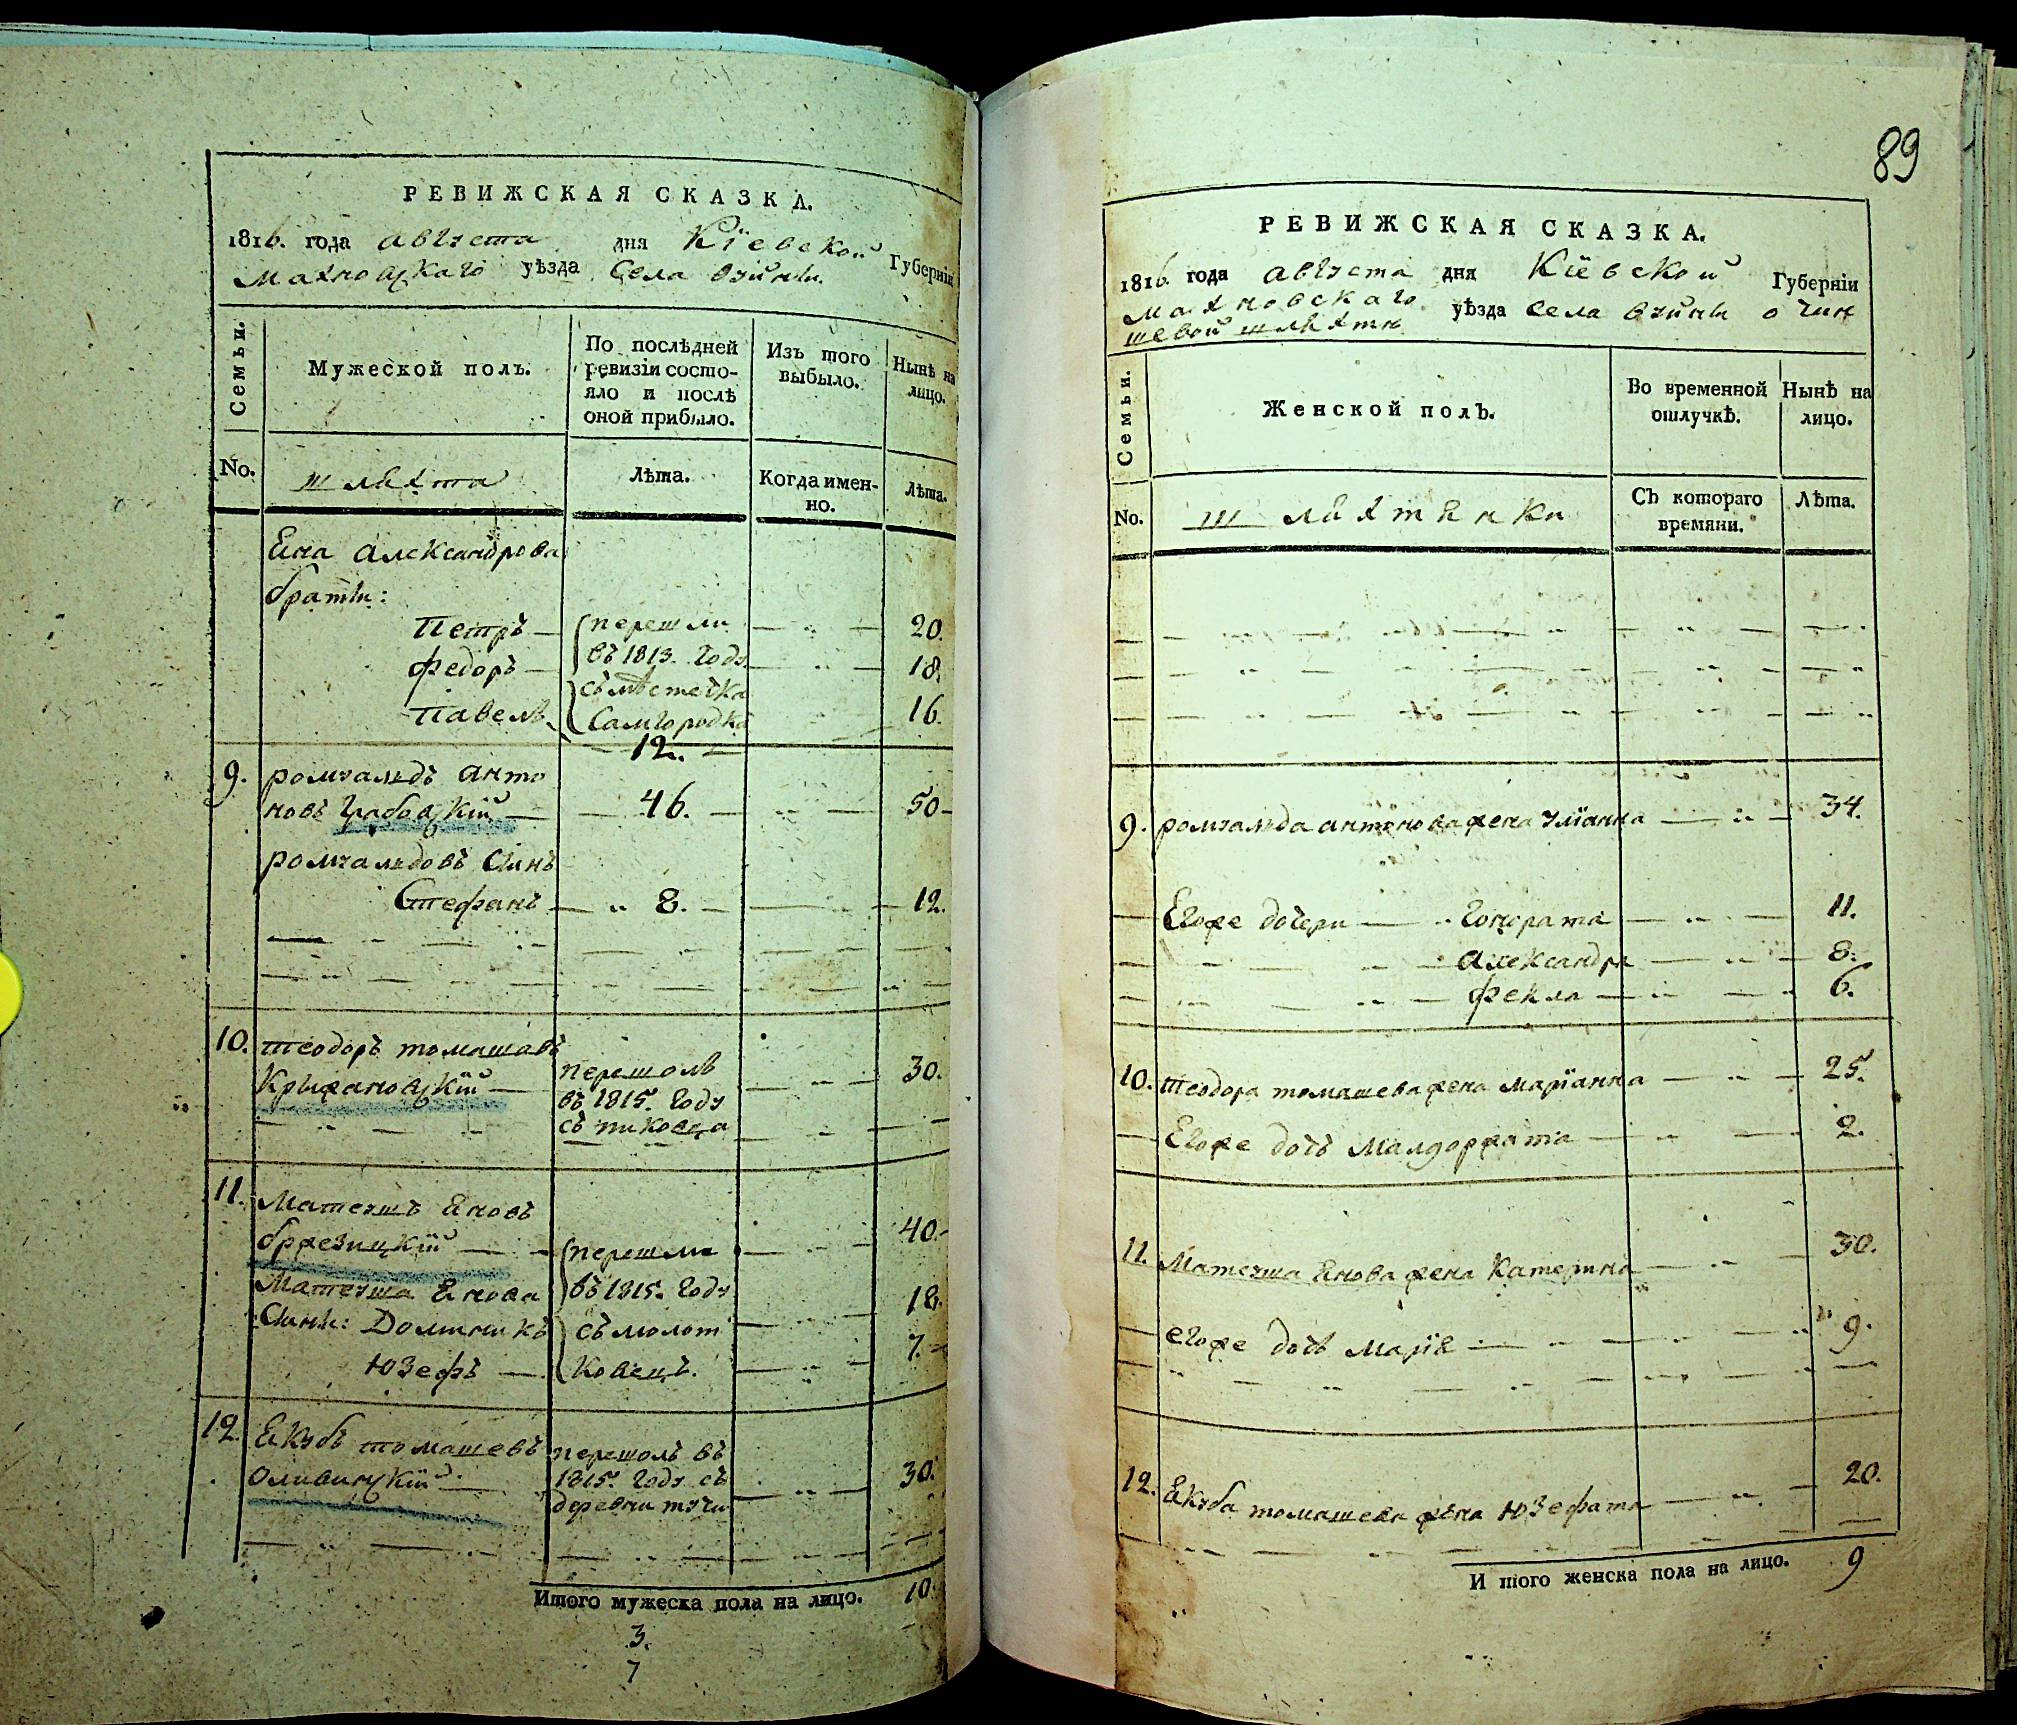 РЕВИЖСКАЯ СКАЗКА.
1816. года августа дня Кіевской Губерніи
Махновскаго уѣзда Села
Семьи.
Мужеской полъ.
По послѣдней ревизіи состо-
яло и послѣ
оной прибыло.
Изъ того
выбыло.
Нынѣ на
лицо.
No.
шляхта
Лѣта.
Когда имен-
но.
Лѣта.
Александрова
братьи:
Петръ перешли 20.
Федоръ въ 1813. году 18.
съ местечка
Павелъ Самгородка 16.
12.
9. ромуальдъ анто
новъ Грабовскій 46. 50
ромуальдовъ Сынъ
Стефанъ 8. 12.
10. теодоръ томашовъ
Крыжановскій перешолъ 30.
въ 1815. году
съ пиковца
11. Матеушъ Яновъ
бржезицкій перешли 40.
Матеуша Янова въ 1815. году
Сыны: Доминикъ съ молот 18.
Юзефъ ковецъ. 7.
12. Якубъ томашевъ перешолъ въ
1815. году съ 30.
деревни
Итого мужеска пола на лицо. 10.
3.
7
89
РЕВИЖСКАЯ СКАЗКА.
1816. года августа дня Кіевской Губерніи
Махновскаго уѣзда села о чин
шевой шляхты
Семьи.
Женской полъ.
Во временной
отлучкѣ.
Нынѣ на
лицо.
No.
шляхтянки
Съ котораго
времяни.
Лѣта.
9. ромуальда антонова жена Улїанна 34.
Егоже дочери Гонората 11.
Александра 8.
Фекла 6.
10. теодора томашева жена Марїанна 25.
Егоже дочь 2.
11. Матеуша Янова жена Катерина 30.
егоже дочь Марїя 9.
12. Якуба томашева жена Юзефата 20.
Итого женска пола на лицо. 9